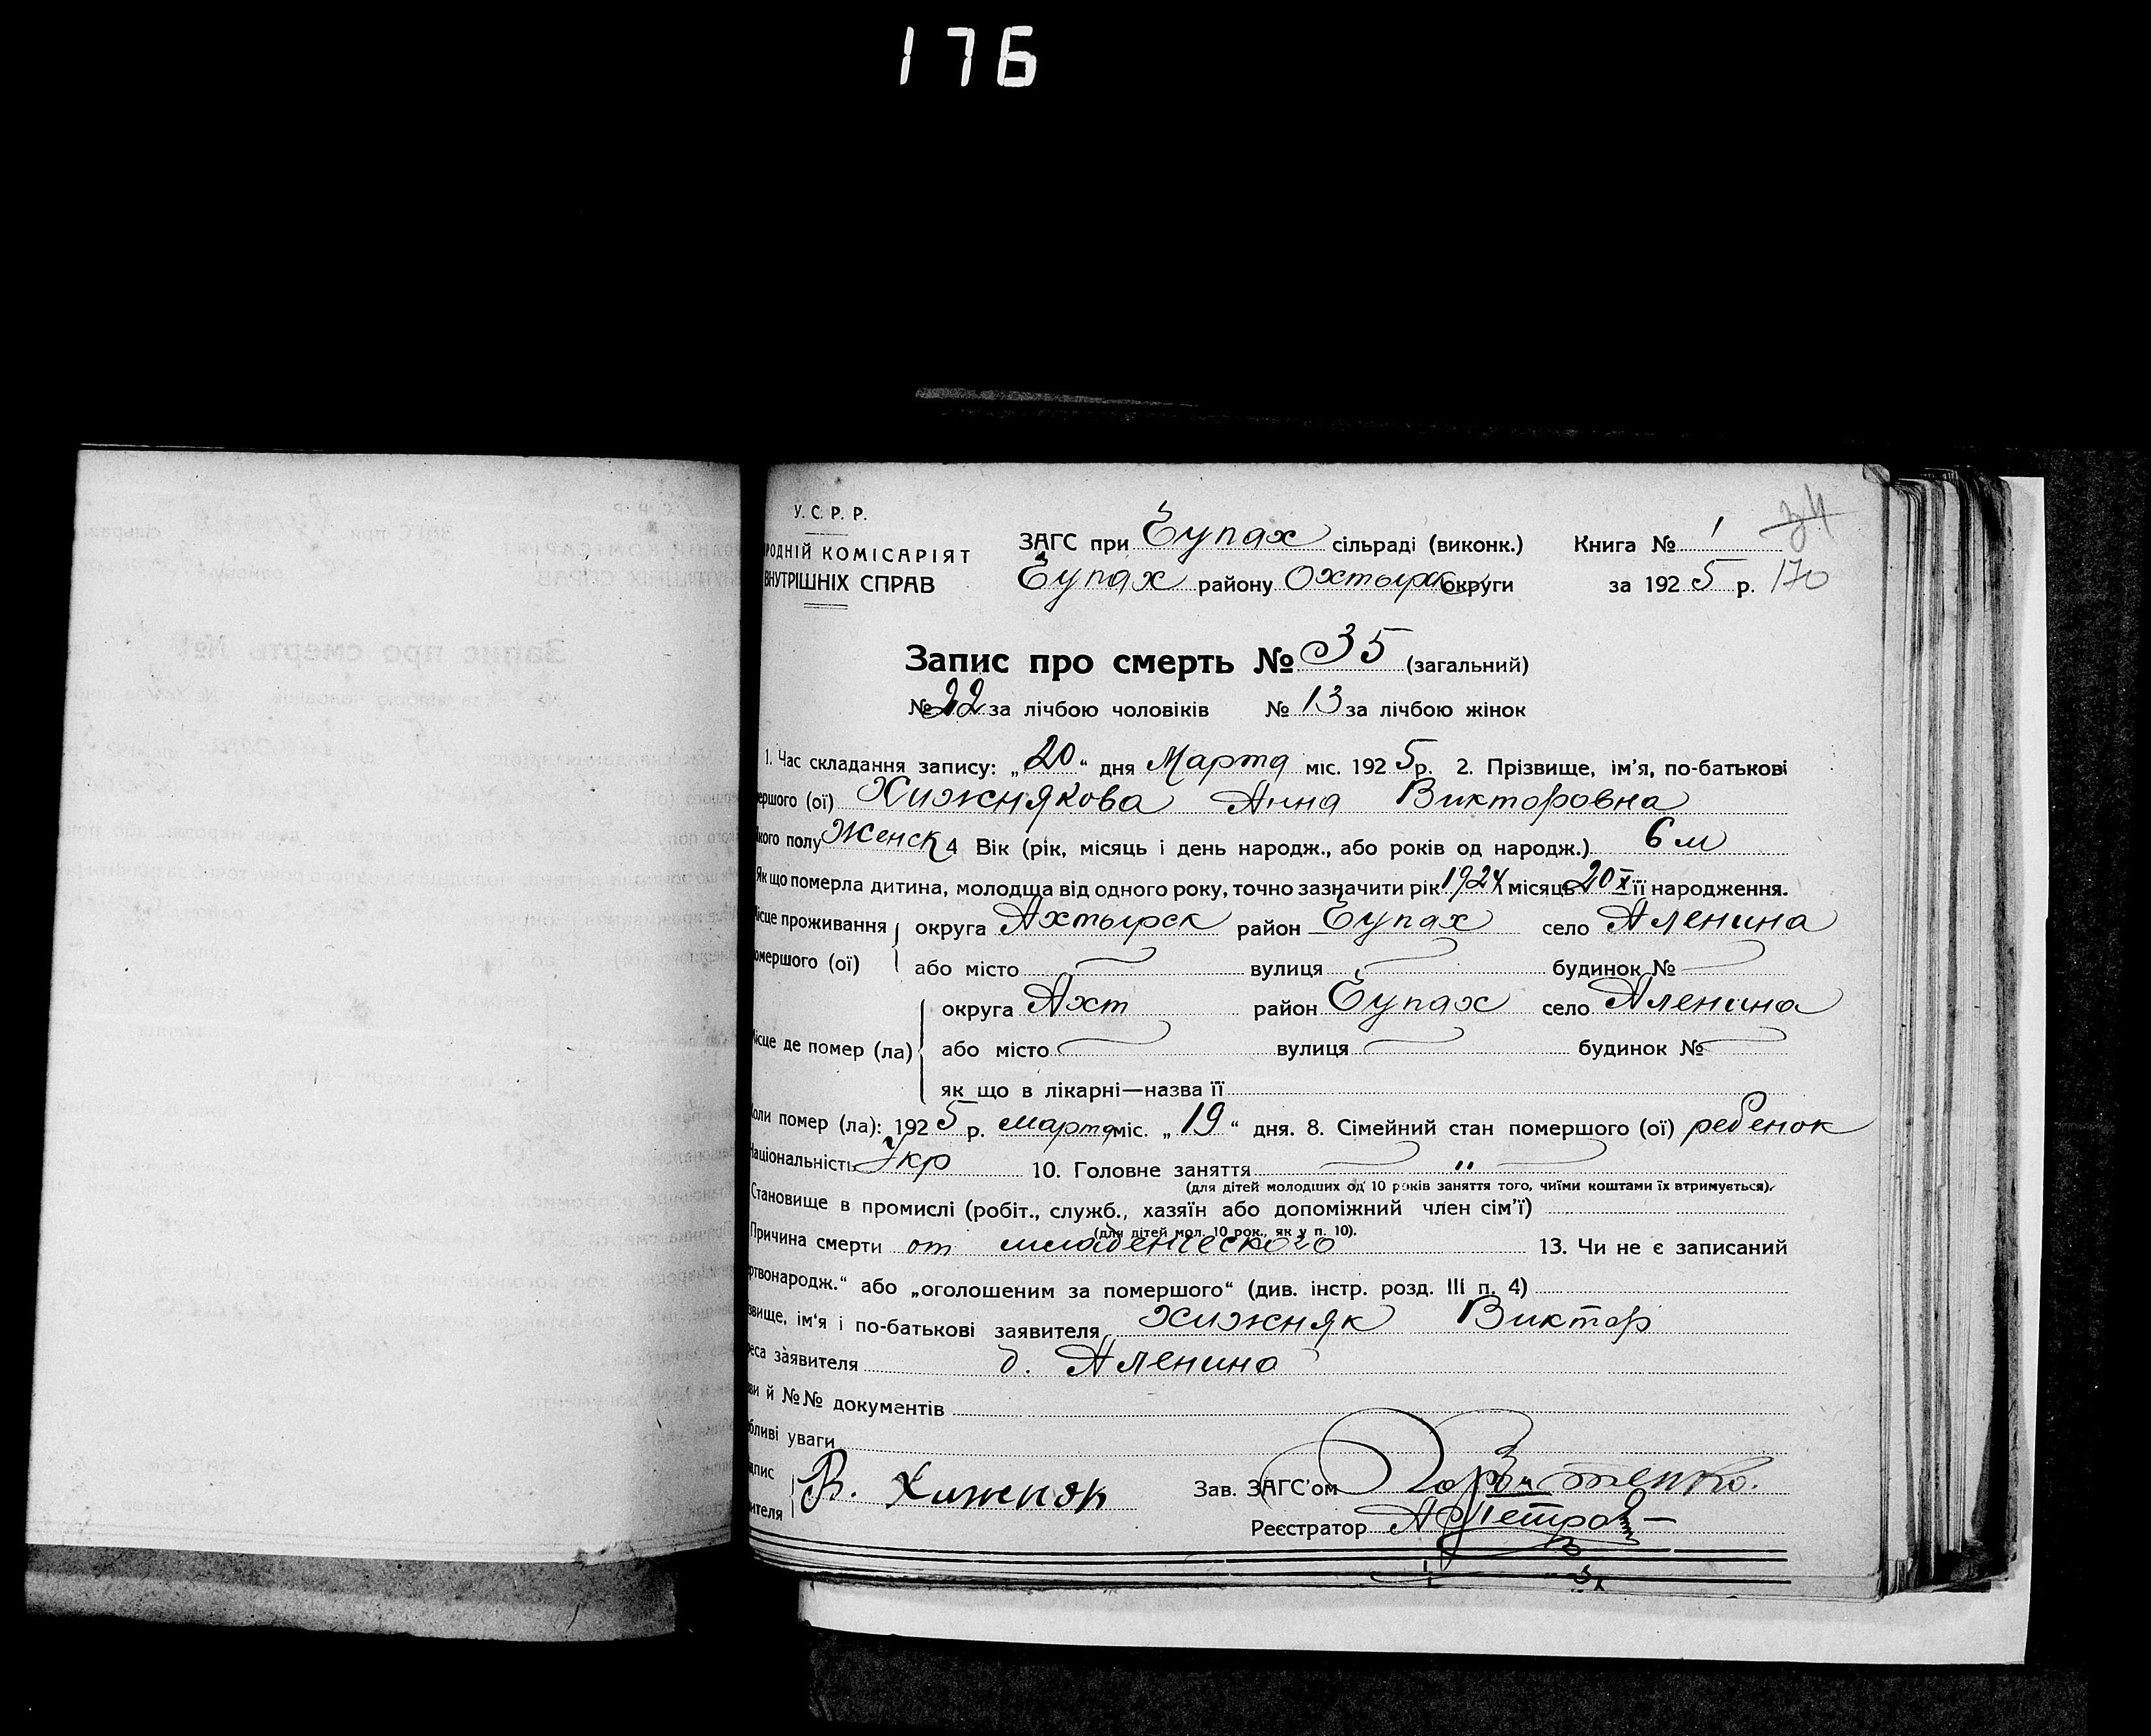 176
У. С. Р. Р.
РОДНІЙ КОМІСАРІЯТ
ВНУТРІШНІХ СПРАВ
ЗАГС при Чупах сільраді (виконк.)
Чупах району Охтырк округи
Книга № 1 34
за 1925 р. 170
Запис про смерть № 35 (загальний)
№ 22 за лічбою чоловіків № 13 за лічбою жінок
1. Час складання запису: „20“ дня Марта міс. 1925 р. 2. Прізвище, ім'я, по-батькові
ершого (ої) Хижнякова Анна Викторовна
кого полу Женск 4 Вік (рік, місяць і день народж., або років од народж.) 6 м
Як що померла дитина, молодща від одного року, точно зазначити рік 1924 місяць 20 X її народження.
ісце проживання округа Ахтырск район Чупах село Аленина
омершого (ої) або місто вулиця будинок №
округа Ахт район Чупах село Аленина
ісце де помер (ла) або місто вулиця будинок №
як що в лікарні—назва її
оли помер (ла): 1925 р. марта міс. „19“ дня. 8. Сімейний стан помершого (ої) ребенок
Національність Укр 10. Головне заняття „
(для дітей молодших од 10 років заняття того, чиїми коштами їх втримується).
Становище в промислі (робіт., служб., хазяїн або допоміжний член сім'ї)
(для дітей мол. 10 рок., як у п. 10).
Причина смерти от младенческого 13. Чи не є записаний
ртвонародж.“ або „оголошеним за помершого“ (див. інстр. розд. III п. 4)
звище, ім'я і по-батькові заявителя Хижняк Виктор
реса заявителя д. Аленино
ви й №№ документів
бливі уваги
дпис
ителя В. Хижнок
Зав. ЗАГС'ом
Реєстратор А Петров